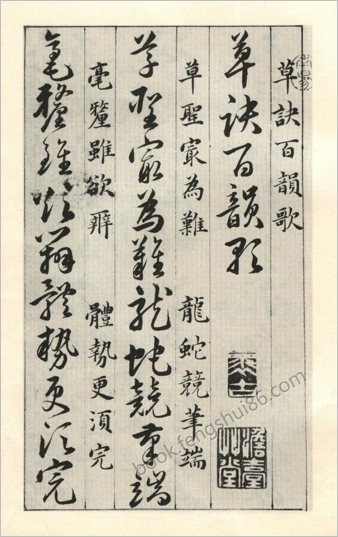 草訣百韻歌
草訣百韻歌
草聖㝡為難 龍蛇競筆端
草聖㝡為難龍蛇競筆端
毫釐雖欲辨 體勢更湏完
毫釐雖欲辨體勢更須完
book.fengshui86.com